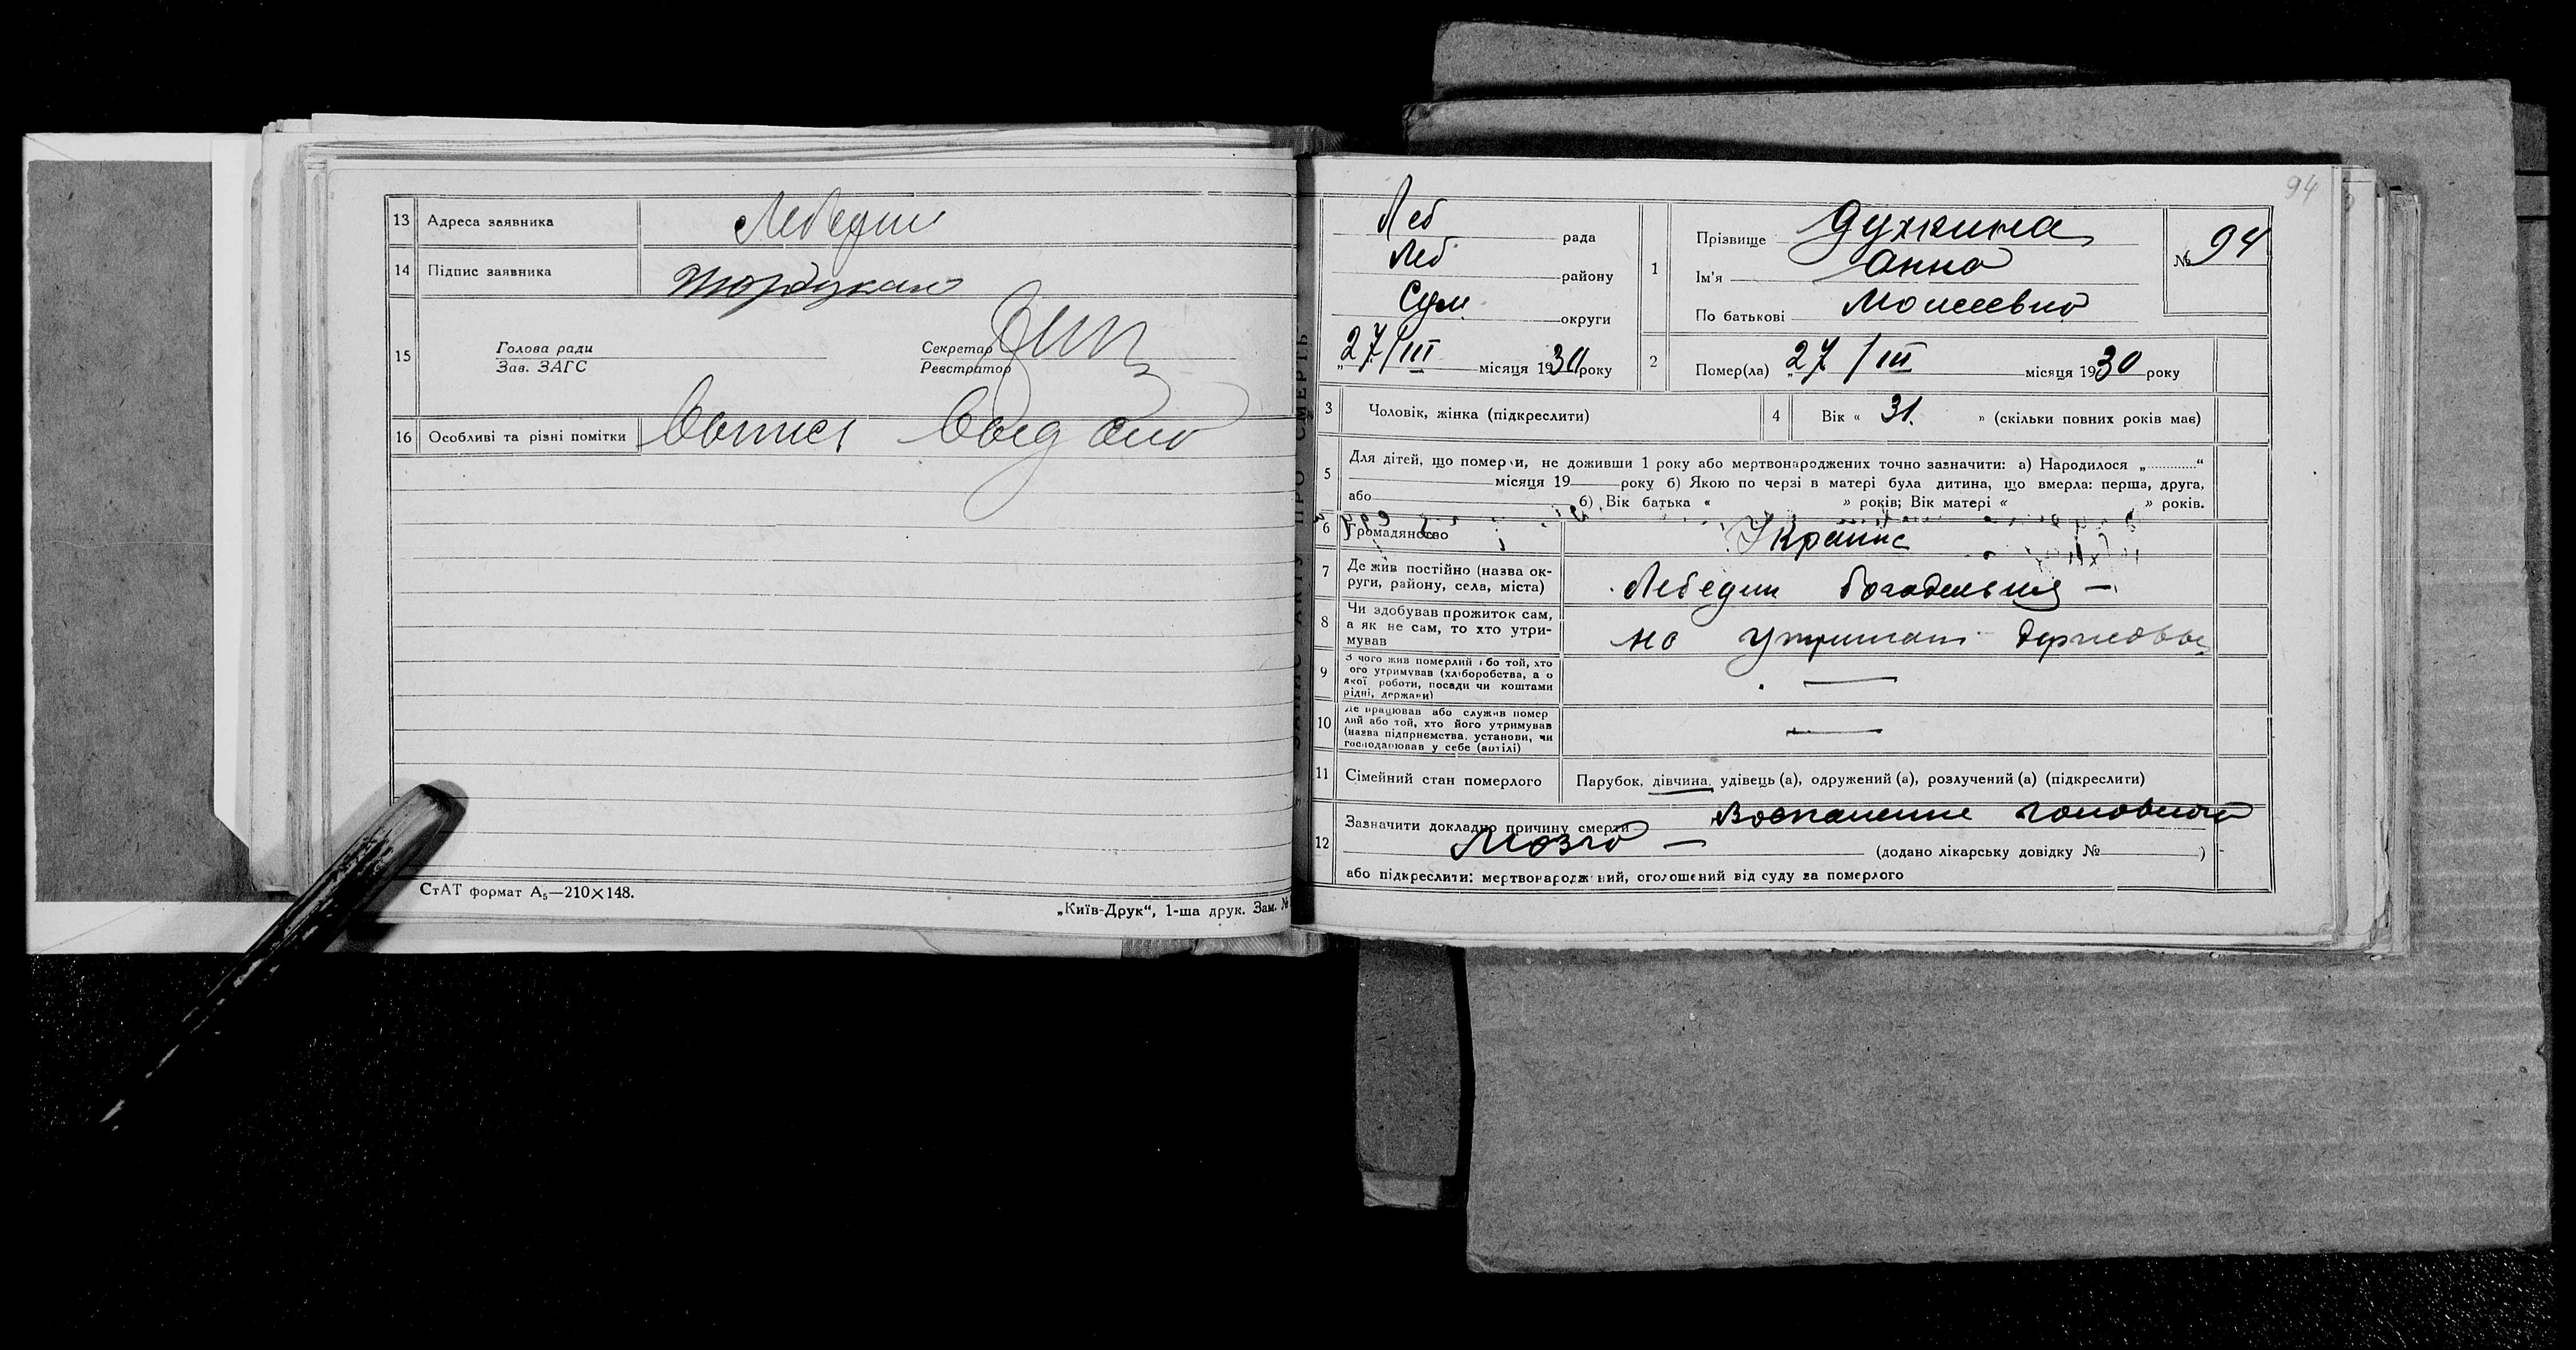 13 Адреса заявника Лебедин
14 Підпис заявника
15 Голова ради
Зав. ЗАГС
Секретар
Реєстратор
16 Особливі та різні помітки
СтАТ формат А₅—210×148.
„Київ-Друк“, 1-ша друк. Зам. №
94
ЗАПИС АКТУ ПРО СМЕРТЬ
Леб рада
Леб району
Сум округи
„27/III місяця 1930 року
1 Прізвище Духнина
Ім'я Анна
По батькові Моисеевна
№ 94
2 Помер(ла) „27/III місяця 1930 року
3 Чоловік, жінка (підкреслити)
4 Вік « 31. » (скільки повних років має)
5 Для дітей, що померли, не доживши 1 року або мертвонароджених точно зазначити: а) Народилося „............“
місяця 19 року б) Якою по черзі в матері була дитина, що вмерла: перша, друга,
або б) Вік батька « » років; Вік матері « » років.
6 Громадянство Україн
7 Де жив постійно (назва ок-
руги, району, села, міста) Лебедин богодельня —
8 Чи здобував прожиток сам,
а як не сам, то хто утри-
мував на утриман державы
9 З чого жив померлий або той, хто
його утримував (хліборобства, а о
якої роботи, посади чи коштами
рідні, держави) —
10 Де працював або служив помер
лий або той, хто його утримував
(назва підприємства, установи, чи
господарював у себе (артілі) —
11 Сімейний стан померлого Парубок, дівчина, удівець (а), одружений (а), розлучений (а) (підкреслити)
12 Зазначити докладно причину смерти Воспаление головного
мозга — (додано лікарську довідку № )
або підкреслити: мертвонароджений, оголошений від суду за померлого